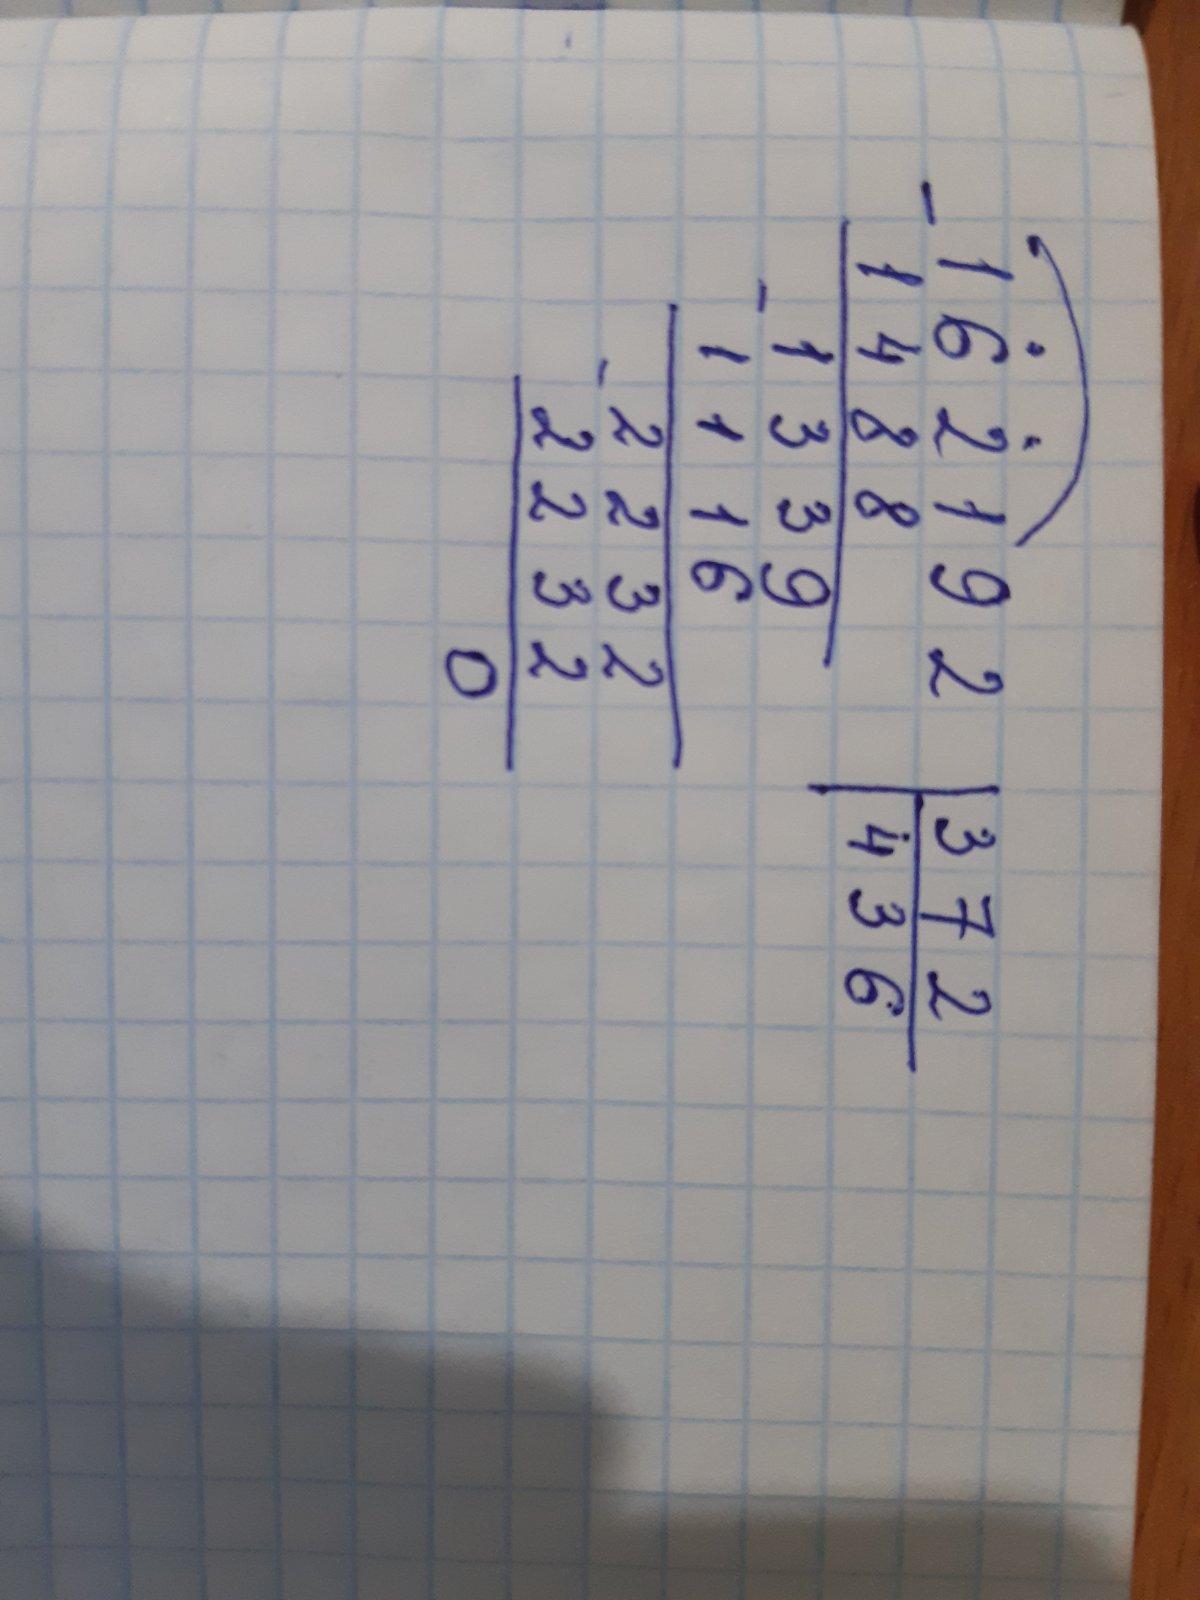 162192 | 372
- 1488 | 436
1339
- 1116
2232
- 2232
0